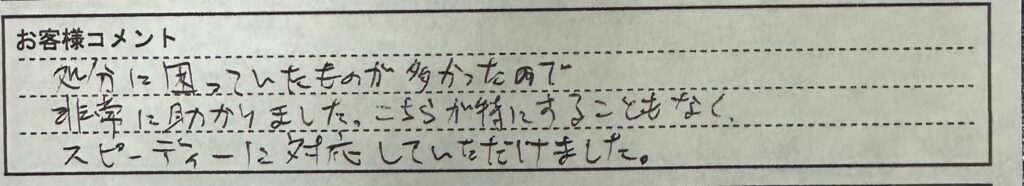 お客様コメント
処分に困っていたものが多かったので
非常に助かりました。こちらが特にすることもなく、
スピーディーに対応していただけました。